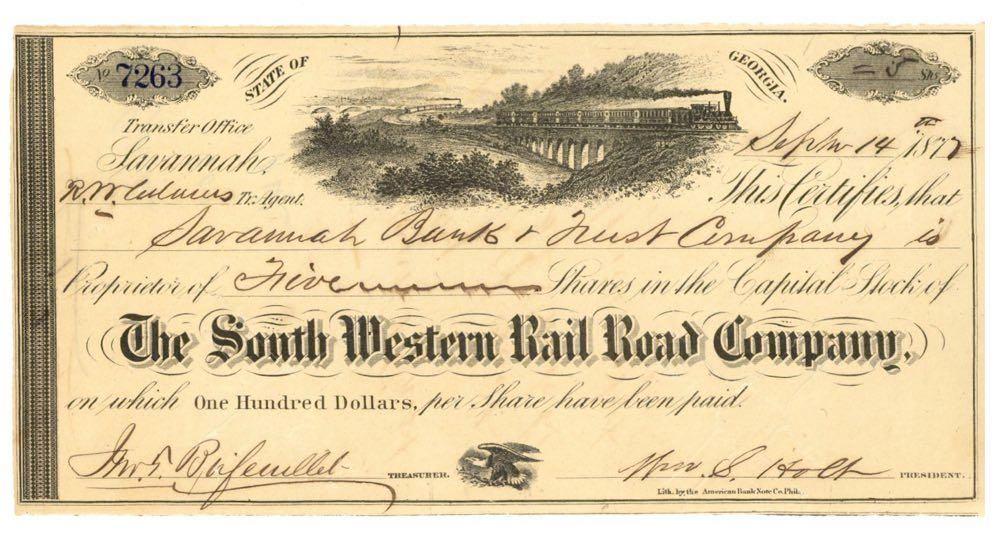 No 7263
STATE OF GEORGIA.
= 5 Shs
Transfer Office
Savannah,
Tr. Agent.
Septr 14th 1877
This Certifies, that
Savannah Bank & Trust Company is
Proprietor of Five Shares in the Capital Stock of
The South Western Rail Road Company,
on which One Hundred Dollars, per Share have been paid.
TREASURER.
Wm. S. Holt PRESIDENT.
Lith. by the American Bank Note Co. Phila.